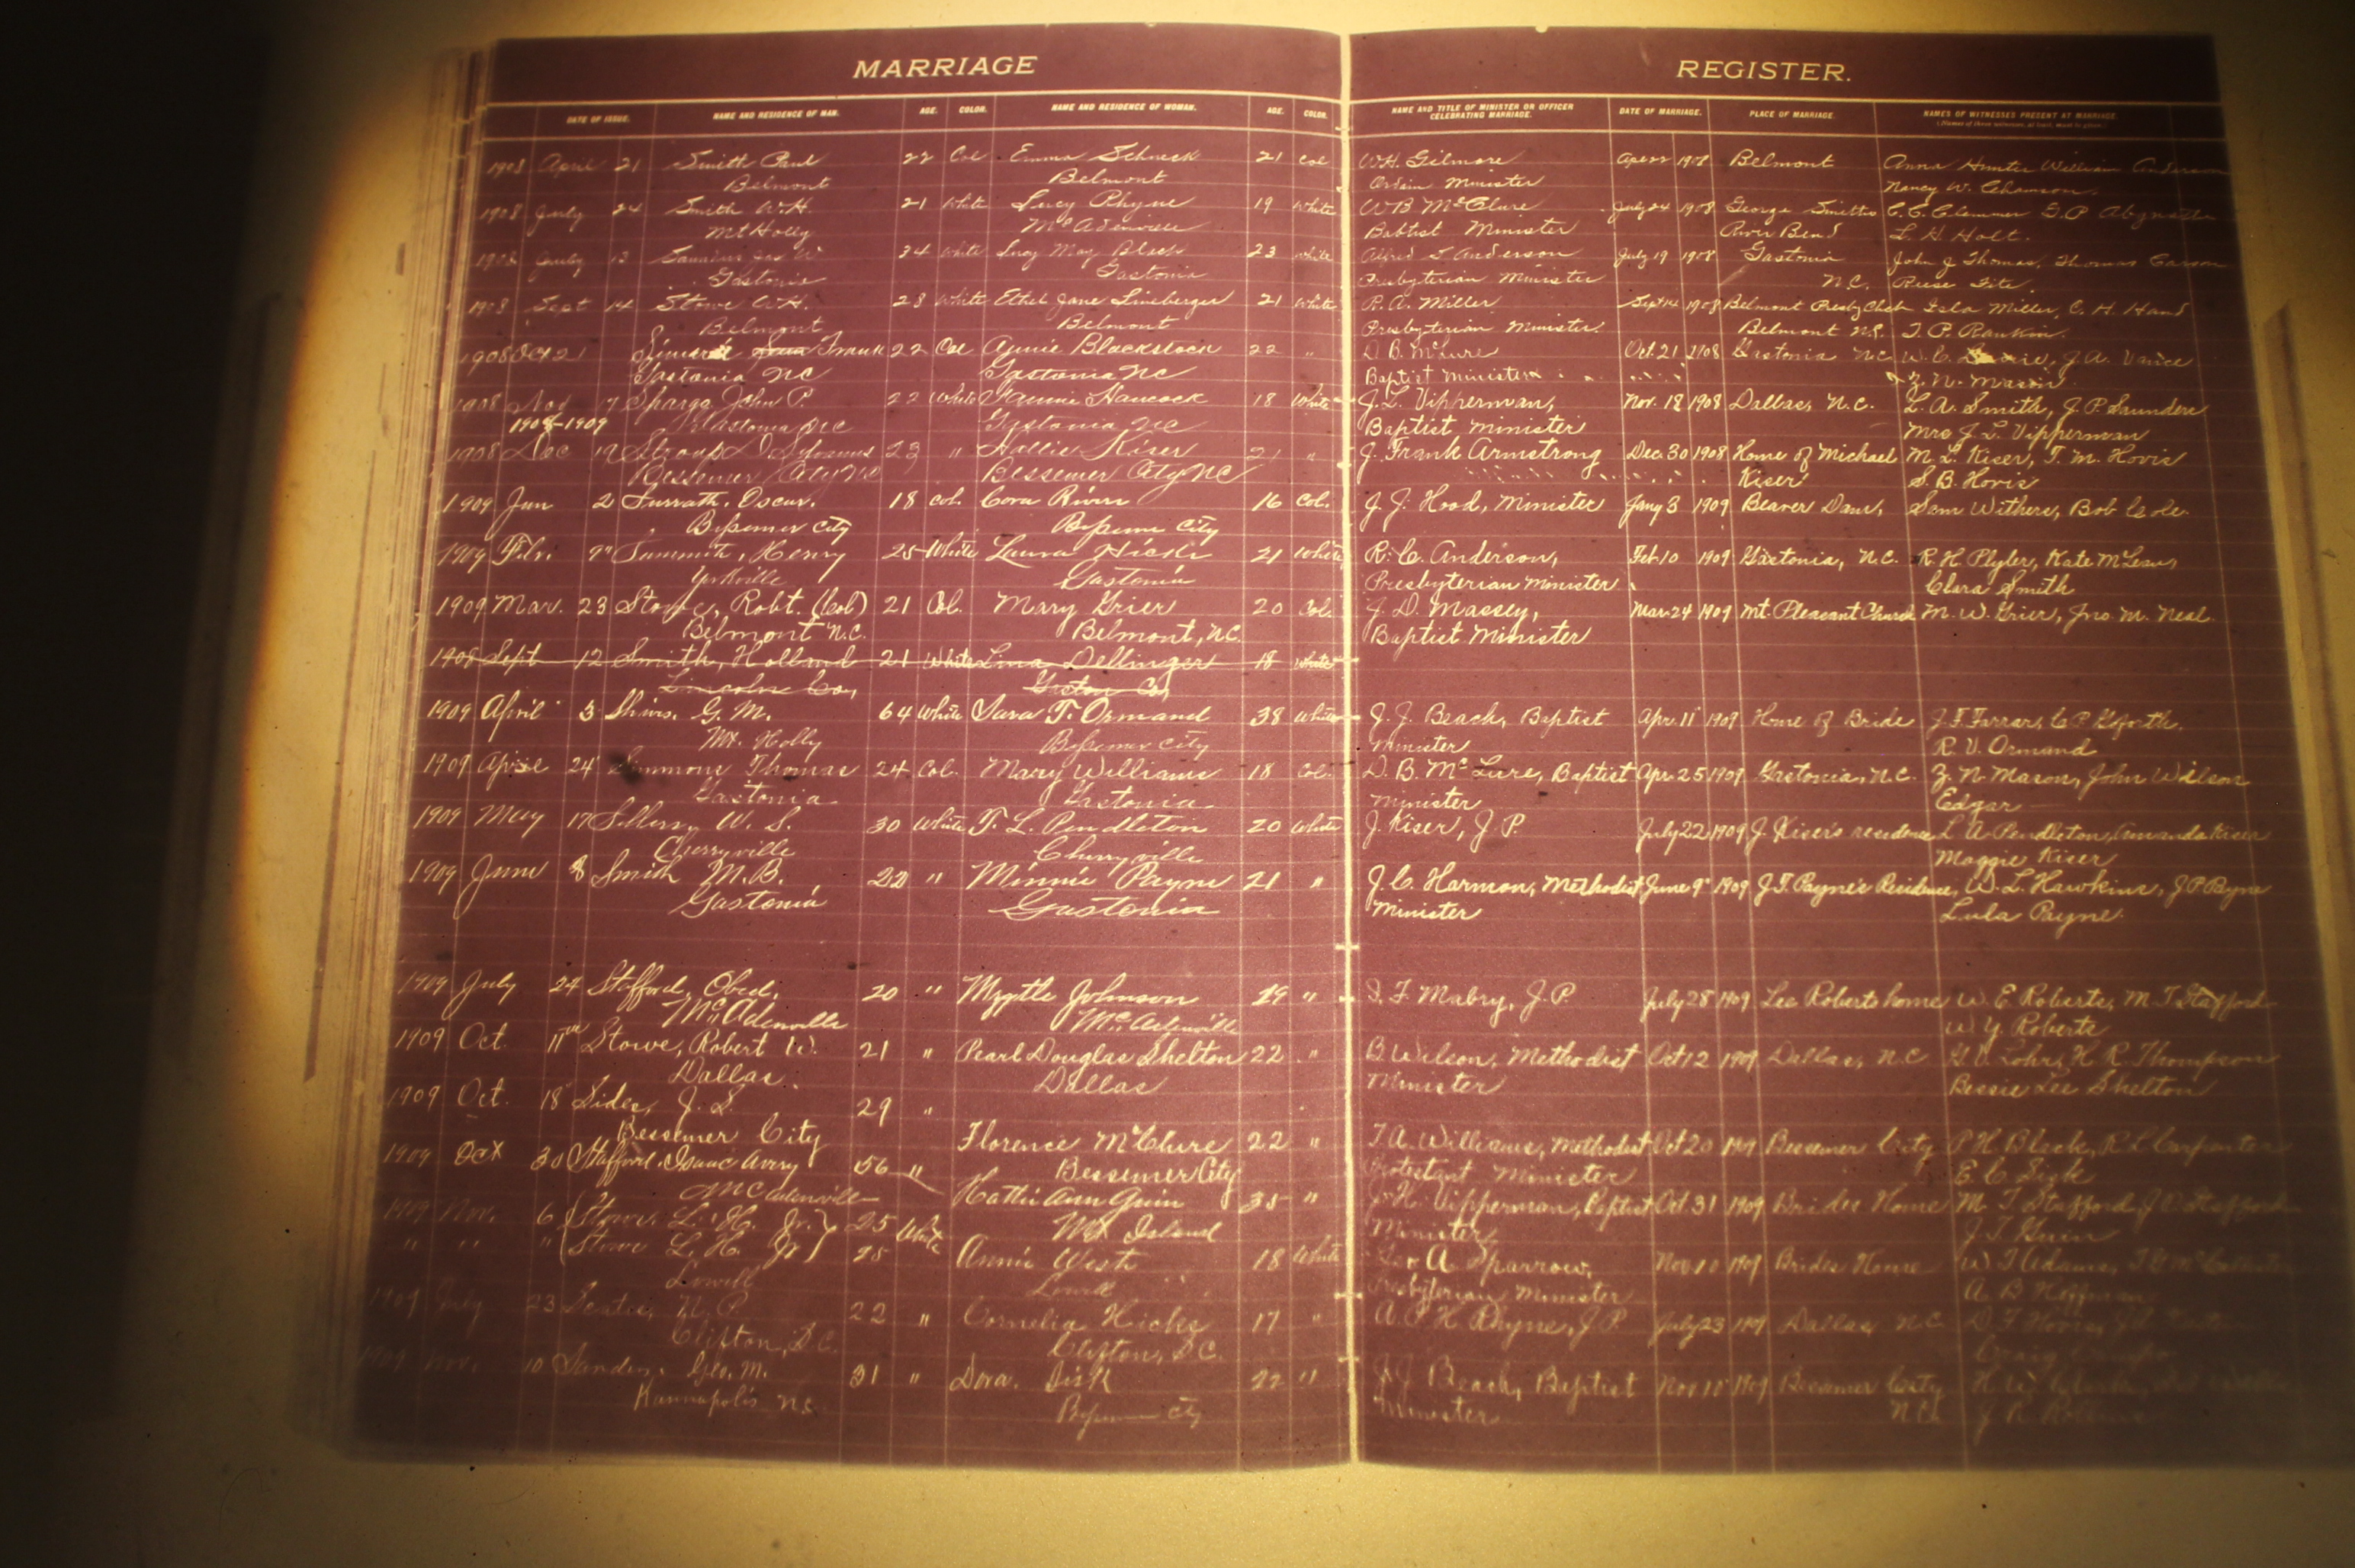 MARRIAGE REGISTER.
DATE OF ISSUE. NAME AND RESIDENCE OF MAN. AGE. COLOR. NAME AND RESIDENCE OF WOMAN. AGE. COLOR. NAME AND TITLE OF MINISTER OR OFFICER DATE OF MARRIAGE. PLACE OF MARRIAGE. NAMES OF WITNESSES PRESENT AT MARRIAGE.
CELEBRATING MARRIAGE.
1908 April 21 Smith Paul 22 Col Emma Schneck 21 Col W.H. Gilmore 1908 Belmont Anna Hunter William Anderson
Belmont Belmont Ordain Minister Nancy W.
1908 July 24 Smith W.H. 21 White Lucy Rhyne 19 White W B McClure July 24 1908 George Smiths C. C. Clemmer
Mt Holly McAdenville Baptist Minister River Bend L. H. Holt.
1908 July 13 34 White Lucy May Black 23 White Alfred Anderson July 19 1908 Gastonia John J Thomas, Thomas Carson
Gastonia Gastonia Presbyterian Minister N.C.
1908 Sept 14 Stowe C.H. 23 White Ethel Jane Lineberger 21 White R. A. Miller Sept 14 1908 Belmont Presby Isla Miller, C. H. Hand
Belmont Belmont Presbyterian Minister Belmont N.C. T. P. Rankin
1908 Oct 21 Frank 22 Col Annie Blackstock 22 " D. B. McLure Oct. 21 1908 Gastonia N.C. J. A. Vance
Gastonia NC Gastonia NC Baptist Minister Z. N. Mason
1908 Nov 17 Spargo John P. 22 White Fannie Hancock 18 White J. L. Vipperman, Nov. 18 1908 Dallas, N.C. L. A. Smith, J. P. Saunders
1908-1909 Gastonia NC Gastonia NC Baptist Minister Mrs J. L. Vipperman
1908 Dec 19 Stroup D 23 " Hallie Kiser 21 " J. Frank Armstrong Dec. 30 1908 Home of Michael M. L. Kiser, T. M. Hovis
Bessemer City NC Bessemer City NC Kiser S. B. Hovis
1909 Jan 2 Surratt, Oscar. 18 Col. Cora 16 Col. J. J. Hood, Minister Jany 3 1909 Beaver Dam, Sam Withers, Bob Cole
Bessemer City Bessemer City
1909 9" Summitt, Henry 25 White Laura Hicks 21 White R. C. Anderson, Feb. 10 1909 Gastonia, N.C. R H Plyler, Kate McLean,
Yorkville Gastonia Presbyterian Minister Clara Smith
1909 Mar. 23 Stowe, Robt. (Col) 21 Col. Mary Grier 20 Col. J. D. Massey, Mar. 24 1909 Mt. Pleasant Church M. W. Grier, Jno. M. Neal
Belmont N.C. Belmont, N.C. Baptist Minister
1908 Sept 12 Smith, Holland 21 White Lina Dellinger 18 White
Lincoln Co, Gaston Co,
1909 April 3 G. M. 64 White Sara T. Ormand 38 White J. J. Beach, Baptist Apr. 11 1909 Home of Bride J. F. Farrar,
Mt. Holly Bessemer City Minister R. V. Ormand
1909 April 24 Simmons Thomas 24 Col. Mary Williams 18 Col. D. B. McLure, Baptist Apr. 25 1909 Gastonia, N.C. Z. N. Mason, John Wilson
Gastonia Gastonia Minister Edgar
1909 May 17 Sellers, W. S. 30 White T. L. Pendleton 20 White J. Kiser, J.P. July 22 1909 J. Kiser's residence L. A. Pendleton, Amanda Kiser
Cherryville Cherryville Maggie Kiser
1909 June 8 Smith M.B. 22 " Minnie Payne 21 " J. C. Harmon, Methodist June 9" 1909 J. T. Payne's Residence, W. L. Hawkins,
Gastonia Gastonia Minister Lula Payne
1909 July 24 Stafford, Obed. 20 " Myrtle Johnson 29 " Mabry, J.P. July 28 1909 Lee Roberts home W. E. Roberts, M. T. Stafford
McAdenville McAdenville W Y. Roberts
1909 Oct. 11 Stowe, Robert W. 21 " Pearl Douglas Shelton 22 " B Wilson, Methodist Oct 12 1909 Dallas, N.C. Lohr, H R Thompson
Dallas Dallas Minister Bessie Lee Shelton
1909 Oct. 18 Sides, J. L. 29 "
Bessemer City Florence McClure 22 " T. A. Williams, Methodist Oct 20 1909 Bessemer City P. H. Black, R L Carpenter
1909 Oct 30 Stafford. Isaac Avery 56 " Bessemer City Protestant Minister E. C. Sisk
McAdenville Hattie Ann Guin 35 " Vipperman, Baptist Oct. 31 1909 Brides Home M. T. Stafford, Stafford
1909 Nov. 6 Stowe. L. H. Jr. 25 White Mt Island Minister J. T. Guin
" " " Stowe L. H. Jr 25 Annie West 18 White Geo A Sparrow, Nov 10 1909 Brides House W T Adams,
Lowell Lowell Presbyterian Minister A. B Hoffman
1909 July 23 N. P. 22 " Cornelia Hicks 17 " A. P. H Rhyne, J.P. July 23 1909 Dallas NC
Clifton, S.C. Clifton, S.C.
1909 Nov. 10 Sanders. Geo. M. 31 " Dora. Sisk 22 " J. J. Beach, Baptist Nov 10 1909 Bessemer City
Kannapolis N.C. Bessemer City Minister N.C.